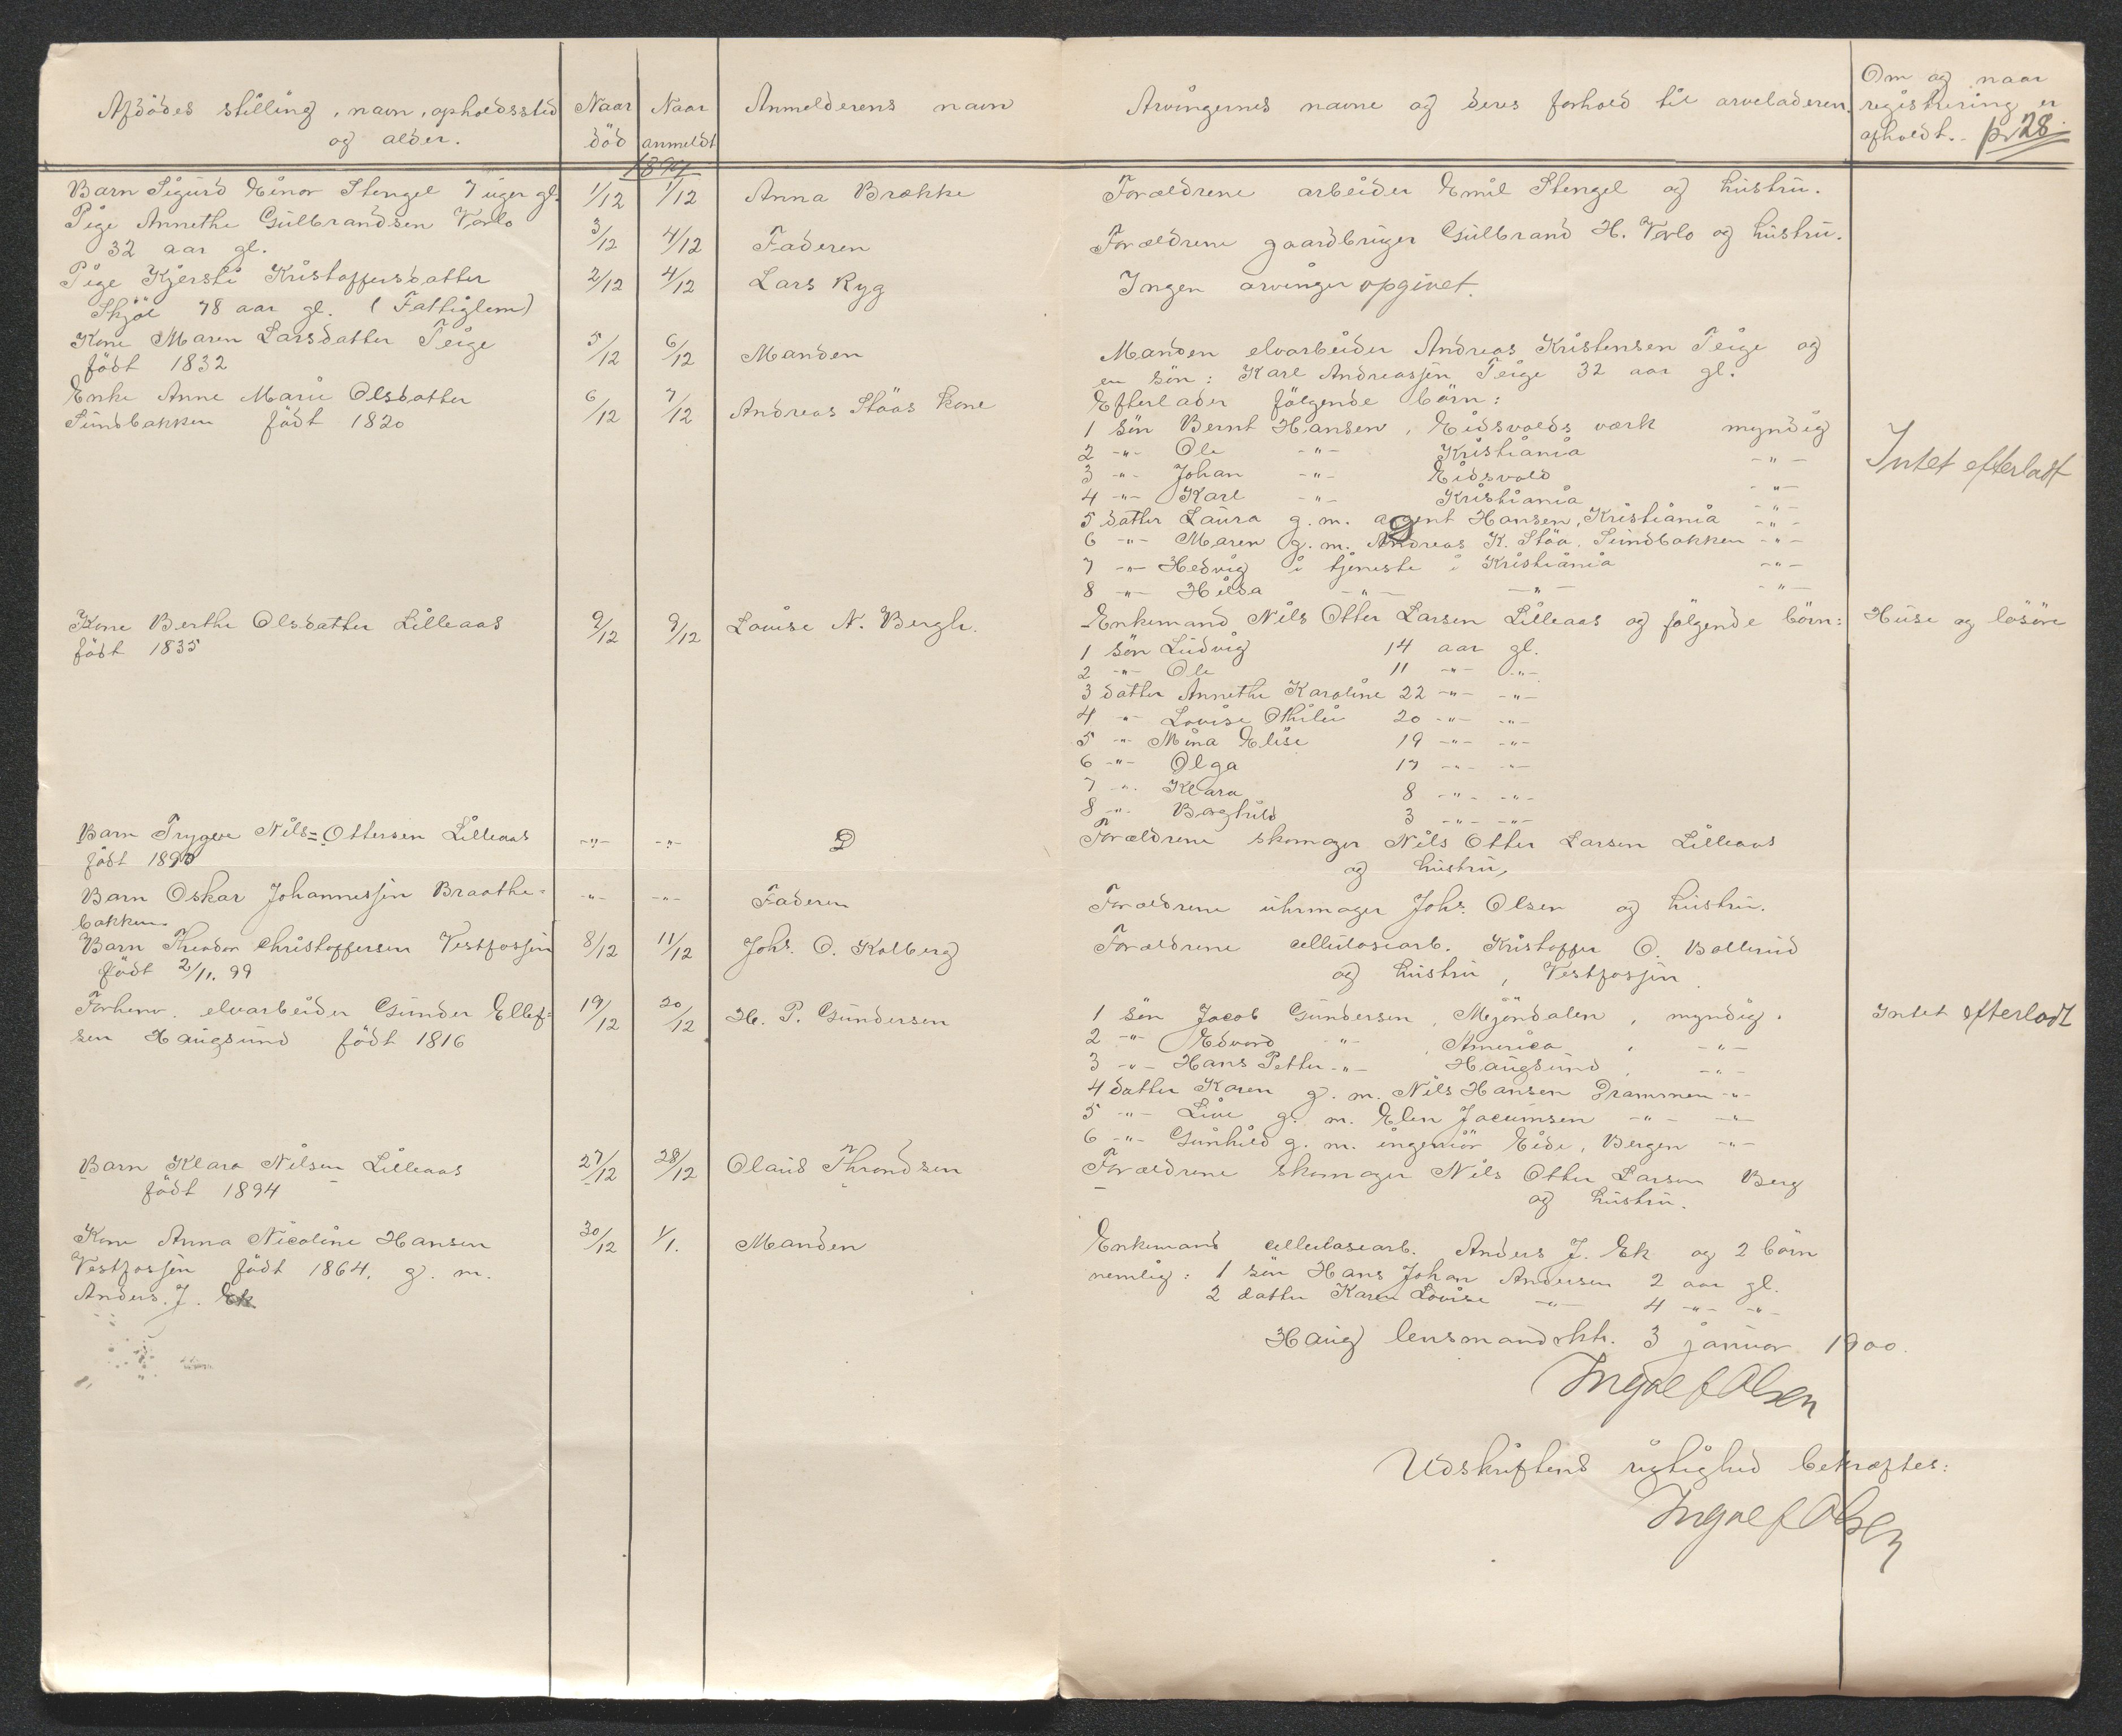 Afdödes stilling, navn, opholdssted
og alder.
Naar
död
Naar
anmeldt
Anmelderens navn
Arvingernes navne og deres forhold til arveladeren.
Om og naar
registrering er
afholdt. pr 28.
Barn Sigurd Einar Stengel 7 uger gl. 1/12 1/12 Anna Brække Forældrene arbeider Emil Stengel og hustru.
Pige Annethe Gulbrandsen Verlo
32 aar gl. 3/12 4/12 Faderen Forældrene gaardbruger Gulbrand H. Verlo og hustru.
Pige Kjersti Kristoffersdatter 2/12 4/12 Lars Ryg Ingen arvinger opgivet.
Skjöl 78 aar gl. (Fattiglem)
Kone Maren Larsdatter Teige 5/12 6/12 Manden Manden elvarbeider Andreas Kristensen Teige og
födt 1832 en sön: Karl Andreassen Teige 32 aar gl.
Enke Anne Marie Olsdatter 6/12 7/12 Andreas Stöas kone Efterlader fölgende börn:
Sundbakken födt 1820
1 sön Bernt Hansen, Eidsvolds værk myndig
2 -"- Ole -"- Kristiania -"-
Intet efterladt
3 -"- Johan -"- Eidsvold -"-
4 -"- Karl -"- Kristiania -"-
5 datter Laura g. m. agent Hansen, Kristiania -"-
6 -"- Maren g. m. Andreas K. Stöa, Sundbakken -"-
7 -"- Hedvig i tjeneste i Kristiania -"-
8 -"- Hilda -"- -"- -"-
Kone Berthe Olsdatter Lilleaas 9/12 9/12 Louise N. Bergh. Enkemand Nils Otter Larsen Lilleaas og fölgende börn: Huse og lösöre
födt 1835
1 sön Ludvig 14 aar gl.
2 -"- Ole 11 -"- -"-
3 datter Annethe Karoline 22 -"- -"-
4 -"- Lovise Othilie 20 -"- -"-
5 -"- Mina Elise 19 -"- -"-
6 -"- Olga 17 -"- -"-
7 -"- Klara 8 -"- -"-
8 -"- Borghild 3 -"- -"-
Barn Trygve Nils=Ottersen Lilleaas -"- -"- D Forældrene skomager Nils Otter Larsen Lilleaas
födt 1890 og hustru,
Barn Oskar Johannessen Braathe= -"- -"- Faderen Forældrene uhrmager Johs. Olsen og hustru.
bakken
Barn Theodor Christoffersen Vestfossen 8/12 11/12 Johs. O. Kolberg Forældrene cellulosearb. Kristoffer O. Bollerud
födt 2/11. 99 og hustru, Vestfossen.
Forhenv. elvarbeider Gunder Ellef= 19/12 20/12 H. P. Gundersen 1 sön Jacob Gundersen, Mjöndalen, myndig. Intet efterladt
sen Haugsund födt 1816 2 -"- Edvard -"- , America, -"-
3 -"- Hans Petter -"- Haugsund, -"-
4 datter Karen g. m. Nils Hansen Drammen -"-
5 -"- Live g. m. Elen Jacumsen -"- -"-
6 -"- Gunhild g. m. ingeniör Eide, Bergen -"-
Barn Klara Nilsen Lilleaas 27/12 28/12 Olaus Throndsen Forældrene skomager Nils Otter Larsen Berg
födt 1894 og hustru.
Kone Anna Nicoline Hansen 30/12 1/1. Manden Enkemand cellulosearb. Anders J. Ek og 2 börn
Vestfossen födt 1864, g. m. nemlig: 1 sön Hans Johan Andersen 2 aar gl.
Anders. J. Ek 2 datter Karen Lovise -"- 4 -"- -"-
Haug lensmandsktr. 3 januar 1900.
Ingvald Olsen
Udskriftens rigtighed bekræftes:
Ingvald Olsen